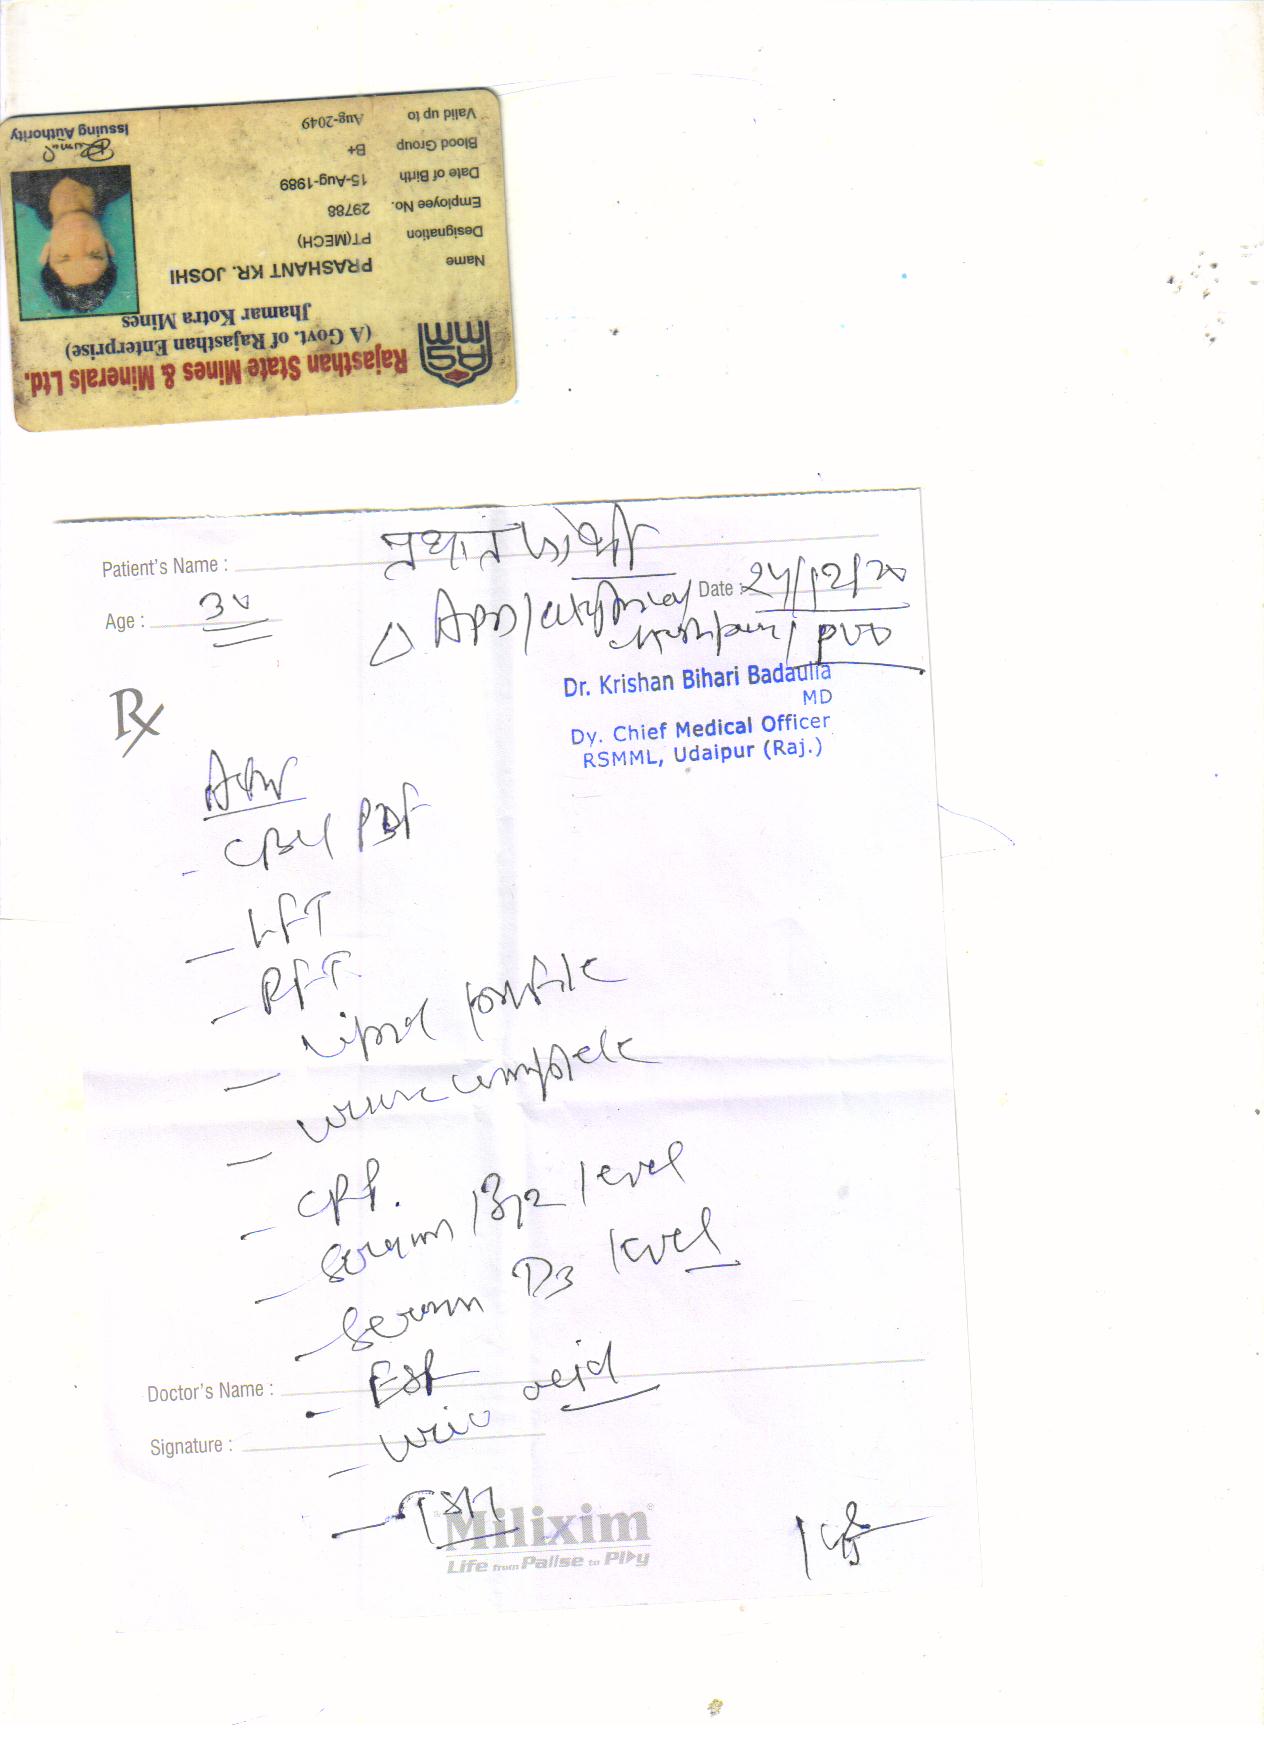 Rajasthan State Mines & Minerals Ltd.
(A Govt. of Rajasthan Enterprise)
Jhamar Kotra Mines
RSMM
Name PRASHANT KR. JOSHI
Designation PT(MECH)
Employee No. 29788
Date of Birth 15-Aug-1989
Blood Group B+
Valid up to Aug-2049
Issuing Authority
Patient's Name :
Date : 24/12/20
Age : 30
△ APD /
PVD
Dr. Krishan Bihari Badaulia
MD
Dy. Chief Medical Officer
RSMML, Udaipur (Raj.)
Rx
- CBC PBF
- LFT
- RFT
- Lipid profile
- urine complete
- CRP.
- serum B12 level
- serum D3 level
Doctor's Name :
- ESR
- uric acid
Signature :
- TSH
Milixim
Life from Pause to Play